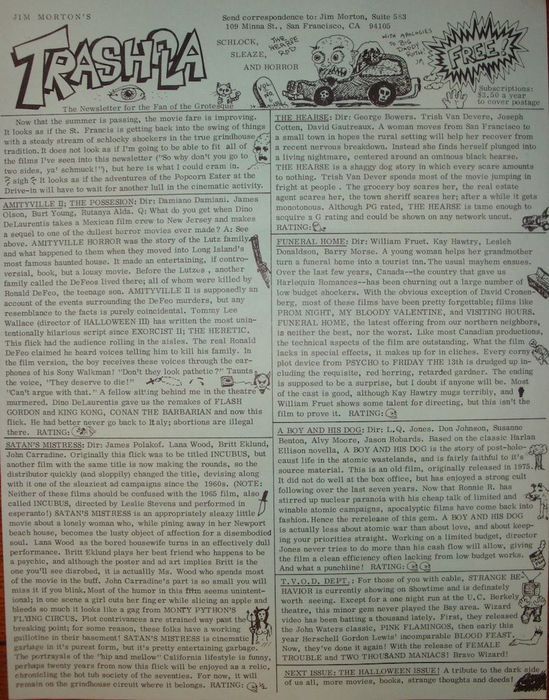 JIM MORTON'S
Send correspondence to: Jim Morton, Suite 583
109 Minna St., San Francisco, CA 94105
TRASHOLA
SCHLOCK,
SLEAZE,
AND HORROR
THE HEARSE ROD
WITH APOLOGIES TO BIG DADDY ROTH! JM
FREE!
Subscriptions:
$3.50 a year
to cover postage
The Newsletter for the Fan of the Grotesque
Now that the summer is passing, the movie fare is improving.
It looks as if the St. Francis is getting back into the swing of things
with a steady stream of schlocky shockers in the true grindhouse
tradition. It does not look as if I'm going to be able to fit all of
the films I've seen into this newsletter ("So why don't you go to
two sides, ya' schmuck!"), but here is what I could cram in.
? sigh ? It looks as if the adventures of the Popcorn Eater at the
Drive-in will have to wait for another lull in the cinematic activity.
AMITYVILLE II; THE POSSESION: Dir: Damiano Damiani. James
Olson, Burt Young, Rutanya Alda. Q: What do you get when Dino
DeLaurentis takes a Mexican film crew to New Jersey and makes
a sequel to one of the dullest horror movies ever made? A: See
above. AMITYVILLE HORROR was the story of the Lutz family
and what happened to them when they moved into Long Island's
most famous haunted house. It made an entertaining, if contro-
versial, book, but a lousy movie. Before the Lutzes, another
family called the DeFeos lived there; all of whom were killed by
Ronald DeFeo, the teenage son. AMITYVILLE II is supposedly an
account of the events surrounding the DeFeo murders, but any
resemblance to the facts is purely coincidental. Tommy Lee
Wallace director of HALLOWEEN III has written the most unin-
tentionally hilarious script since EXORCIST II; THE HERETIC.
This flick had the audience rolling in the aisles. The real Ronald
DeFeo claimed he heard voices telling him to kill his family. In
the film version, the boy receives these voices through the ear-
phones of his Sony Walkman! "Don't they look pathetic?" Taunts
the voice, "They deserve to die!"
"Can't argue with that." A fellow sitting behind me in the theatre
murmered. Dino DeLaurentis gave us the remakes of FLASH
GORDON and KING KONG, CONAN THE BARBARIAN and now this
flick. He had better never go back to Italy; abortions are illegal
there. RATING:
SATAN'S MISTRESS: Dir: James Polakof. Lana Wood, Britt Eklund,
John Carradine. Originally this flick was to be titled INCUBUS, but
another film with the same title is now making the rounds, so the
distributor quickly (and sloppily) changed the title, devising along
with it one of the sleaziest ad campaigns since the 1960s. (NOTE:
Neither of these films should be confused with the 1965 film, also
called INCUBUS, directed by Leslie Stevens and performed in
esperanto!) SATAN'S MISTRESS is an appropriately sleazy little
movie about a lonely woman who, while pining away in her Newport
beach house, becomes the lusty object of affection for a disembodied
soul. Lana Wood as the bored housewife turns in an effectively dull
performance. Britt Eklund plays her best friend who happens to be
a psychic, and although the poster and ad art implies Britt is the
one you'll see disrobed, it is actually Ms. Wood who spends most
of the movie in the buff. John Carradine's part is so small you will
miss it if you blink. Most of the humor in this film seems unintent-
ional; in one scene a girl cuts her finger while slicing an apple and
bleeds so much it looks like a gag from MONTY PYTHON'S
FLYING CIRCUS. Plot contrivances are strained way past the
breaking point; for some reason, these folks have a working
guillotine in their basement! SATAN'S MISTRESS is cinematic
garbage in it's purest form, but it's pretty entertaining garbage.
The portrayals of the "hip and mellow" California lifestyle is funny,
perhaps twenty years from now this flick will be enjoyed as a relic,
chronicling the hot tub society of the seventies. For now, it will
remain on the grindhouse circuit where it belongs. RATING: ½
THE HEARSE: Dir: George Bowers. Trish Van Devere, Joseph
Cotten, David Gautreaux. A woman moves from San Francisco to
a small town in hopes the rural setting will help her recover from
a recent nervous breakdown. Instead she finds herself plunged into
a living nightmare, centered around an ominous black hearse.
THE HEARSE is a shaggy dog story in which every scare amounts
to nothing. Trish Van Dever spends most of the movie jumping in
fright at people. The grocery boy scares her, the real estate
agent scares her, the town sheriff scares her; after a while it gets
monotonous. Although PG rated, THE HEARSE is tame enough to
acquire a G rating and could be shown on any network uncut.
RATING:
FUNERAL HOME: Dir: William Fruet. Kay Hawtry, Lesleh
Donaldson, Barry Morse. A young woman helps her grandmother
turn a funeral home into a tourist inn. The usual mayhem ensues.
Over the last few years, Canada--the country that gave us
Harlequin Romances--has been churning out a large number of
low budget shockers. With the obvious exception of David Cronen-
berg, most of these films have been pretty forgettable; films like
PROM NIGHT, MY BLOODY VALENTINE, and VISITING HOURS.
FUNERAL HOME, the latest offering from our northern neighbors,
is neither the best, nor the worst. Like most Canadian productions,
the technical aspects of the film are outstanding. What the film
lacks in special effects, it makes up for in cliches. Every corny
plot device from PSYCHO to FRIDAY THE 13th is drudged up in-
cluding the requisite, red herring, retarded gardner. The ending
is supposed to be a surprise, but I doubt if anyone will be. Most
of the cast is good, although Kay Hawtry mugs terribly, and
William Fruet shows some talent for directing, but this isn't the
film to prove it. RATING:
A BOY AND HIS DOG: Dir: L.Q. Jones. Don Johnson, Susanne
Benton, Alvy Moore, Jason Robards. Based on the classic Harlan
Ellison novella, A BOY AND HIS DOG is the story of post-holo-
caust life in the atomic wastelands, and is fairly faithful to it's
source material. This is an old film, originally released in 1975.
It did not do well at the box office, but has enjoyed a strong cult
following over the last seven years. Now that Ronnie R. has
stirred up nuclear paranoia with his cheap talk of limited and
winable atomic campaigns, apocalyptic films have come back into
fashion. Hence the rerelease of this gem. A BOY AND HIS DOG
is actually less about atomic war than about love, and about keep-
ing your priorities straight. Working on a limited budget, director
Jones never tried to do more than his cash flow will allow, giving
the film a clean efficiency often lacking from low budget works.
And what a punchline! RATING:
T.V.O.D. DEPT.: For those of you with cable, STRANGE BE-
HAVIOR is currently showing on Showtime and is definately
worth seeing. Except for a one night run at the U.C. Berkely
theatre, this minor gem never played the Bay area. Wizard
video has been batting a thousand lately. First, they released
the John Waters classic, PINK FLAMINGOS, then early this
year Herschell Gordon Lewis' incomparable BLOOD FEAST.
Now, they've done it again! With the release of FEMALE
TROUBLE and TWO THOUSAND MANIACS! Bravo Wizard!
NEXT ISSUE: THE HALLOWEEN ISSUE! A tribute to the dark side
of us all, more movies, books, strange thoughts and deeds!